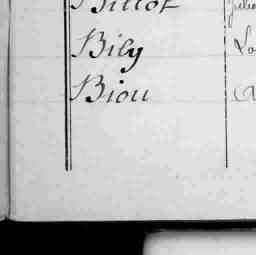 Billot
Bily
Biou